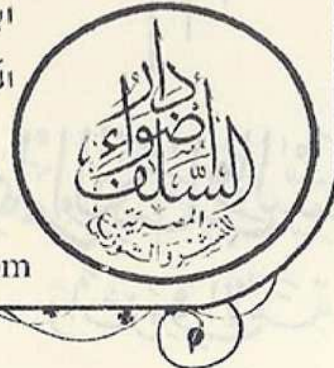 دار
أضواء
السلف
المصرية
للنشر والتوزيع
om
م